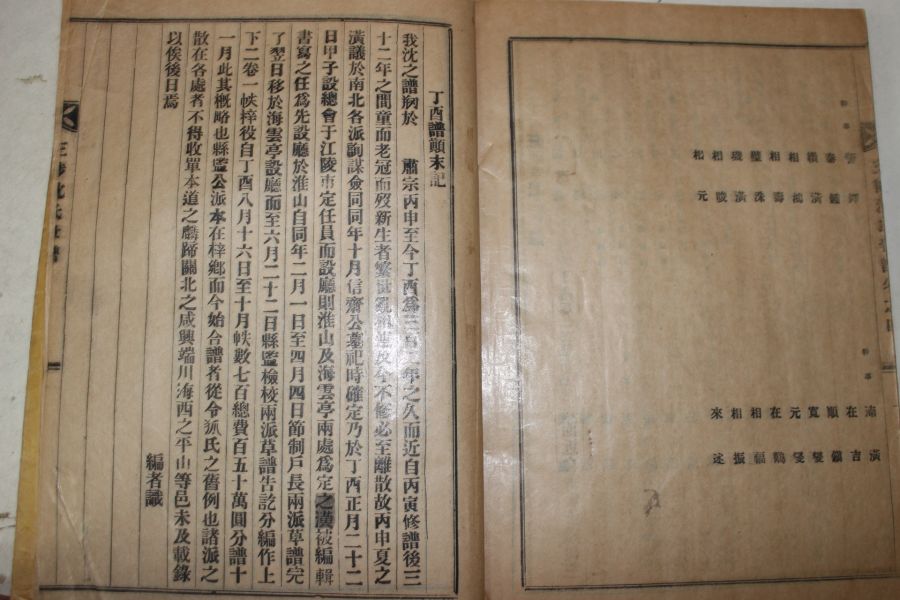 幹事
積潢
相鴻
相壽
璧洙
璣潢
相駿
松元
幹事
南潢
在吉
順鎭
寬燮
元燮
在鶴
相福
相振
來述
丁酉譜顚末記
我沈之譜刱於 肅宗丙申至今丁酉爲三百二年之久而近自丙寅修譜後三
十二年之間童而老冠而歿新生者繁世親及今不修必至離散故丙申夏之
潢議於南北各派詢謀僉同同年十月信齋公墓祀時確定乃於丁酉正月二十二
日甲子設總會于江陵市定任員而設廳則淮山及海雲亭兩處爲定之潢被編輯
書寫之任爲先設廳於淮山自同年二月一日至四月四日節制戶長兩派草譜完
了翌日移於海雲亭設廳而至六月二十二日縣監檢校兩派草譜告訖分編作上
下二卷一帙梓役自丁酉八月十六日至十月帙數七百總費百五十萬圓分譜十
一月此其槪略也縣監公派本在梓鄕而今始合譜者從令狐氏之舊例也諸派之
散在各處者不得收單本道之麟蹄關北之咸興端川海西之平山等邑未及載錄
以俟後日焉
編者識
三陟沈氏世譜